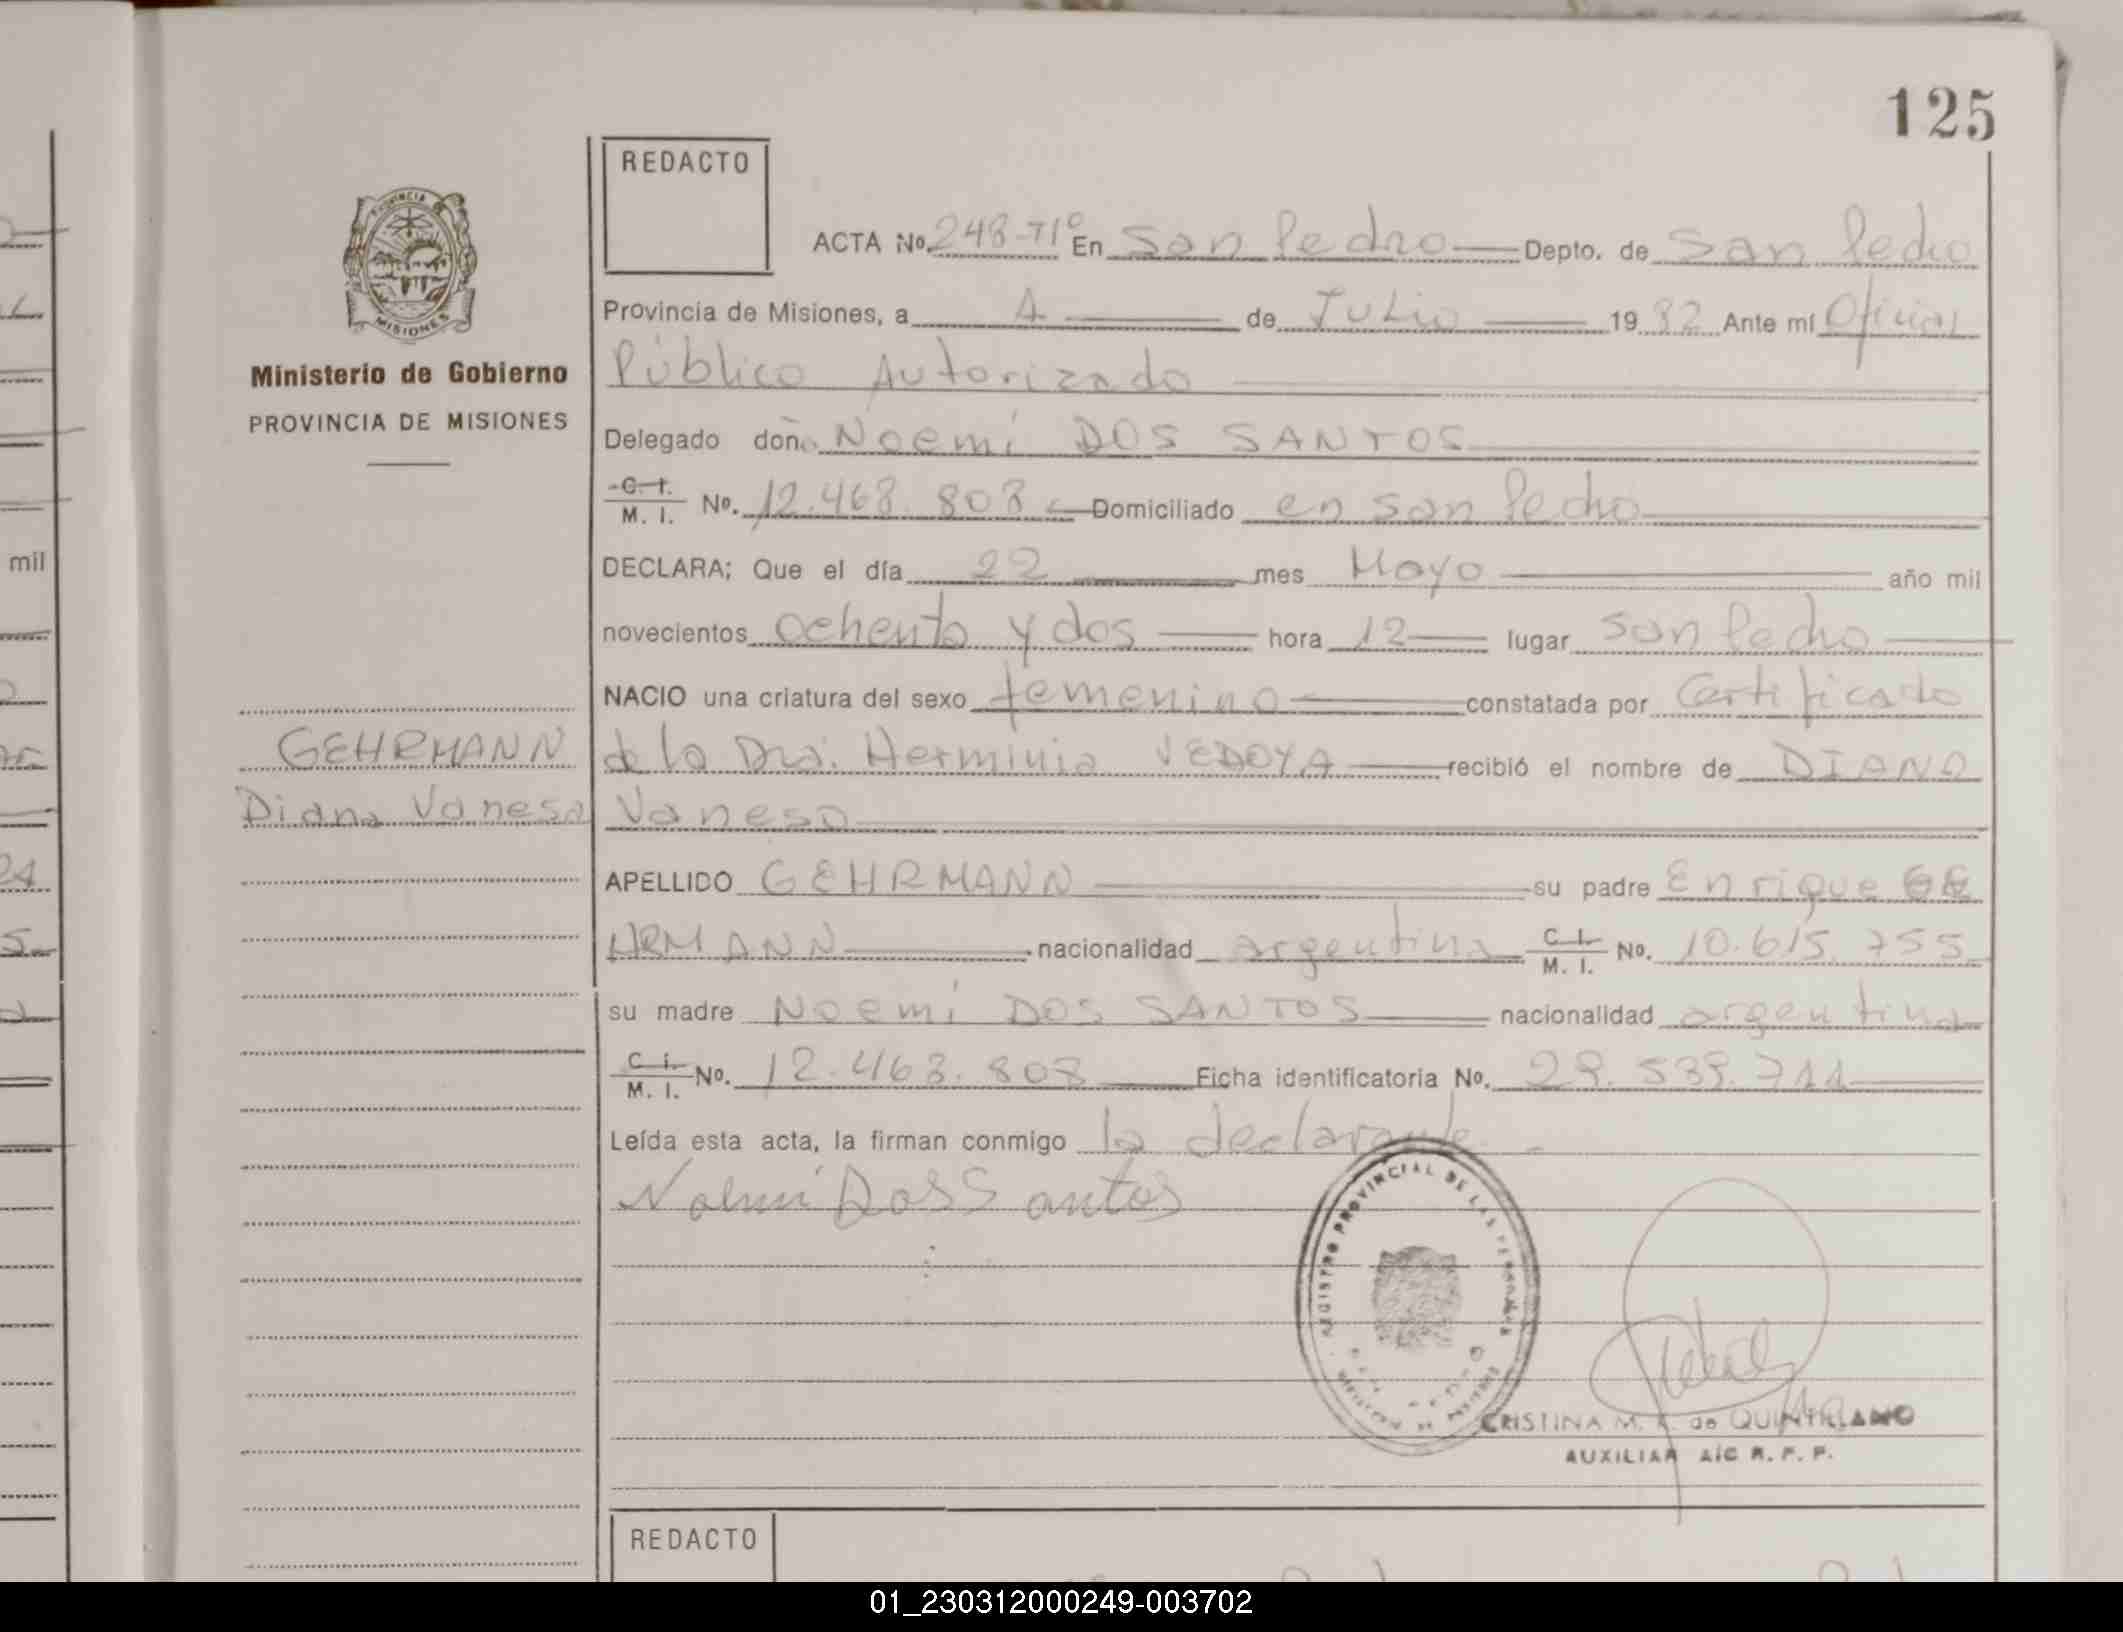 125
REDACTO
ACTA No. 248-T1º En San Pedro Depto. de San Pedro
PROVINCIA DE
MISIONES
Provincia de Misiones, a 1 de Julio 1982 Ante mí Oficial
Ministerio de Gobierno
Público Autorizado
PROVINCIA DE MISIONES
Delegado doña Noemí DOS SANTOS
C. I.
M. I. No. 12.468.808 Domiciliado en San Pedro
mil
DECLARA; Que el día 22 mes Mayo año mil
novecientos ochenta y dos hora 12 lugar San Pedro
NACIO una criatura del sexo femenino constatada por Certificado
GEHRMANN
de la Dra. Herminia VEDOYA recibió el nombre de DIANA
Diana Vanesa
Vanesa
APELLIDO GEHRMANN su padre Enrique GE
HRMANN nacionalidad argentina C. I. M. I. No. 10.615.755
su madre Noemí DOS SANTOS nacionalidad argentina
C. I.
M. I. No. 12.468.808 Ficha identificatoria No. 29.539.711
Leída esta acta, la firman conmigo la declarante.
Noemí Dos Santos
REGISTRO PROVINCIAL DE LAS PERSONAS
CRISTINA M. K. de QUINTILLANO
AUXILIAR A/C R. P. P.
REDACTO
01_230312000249-003702